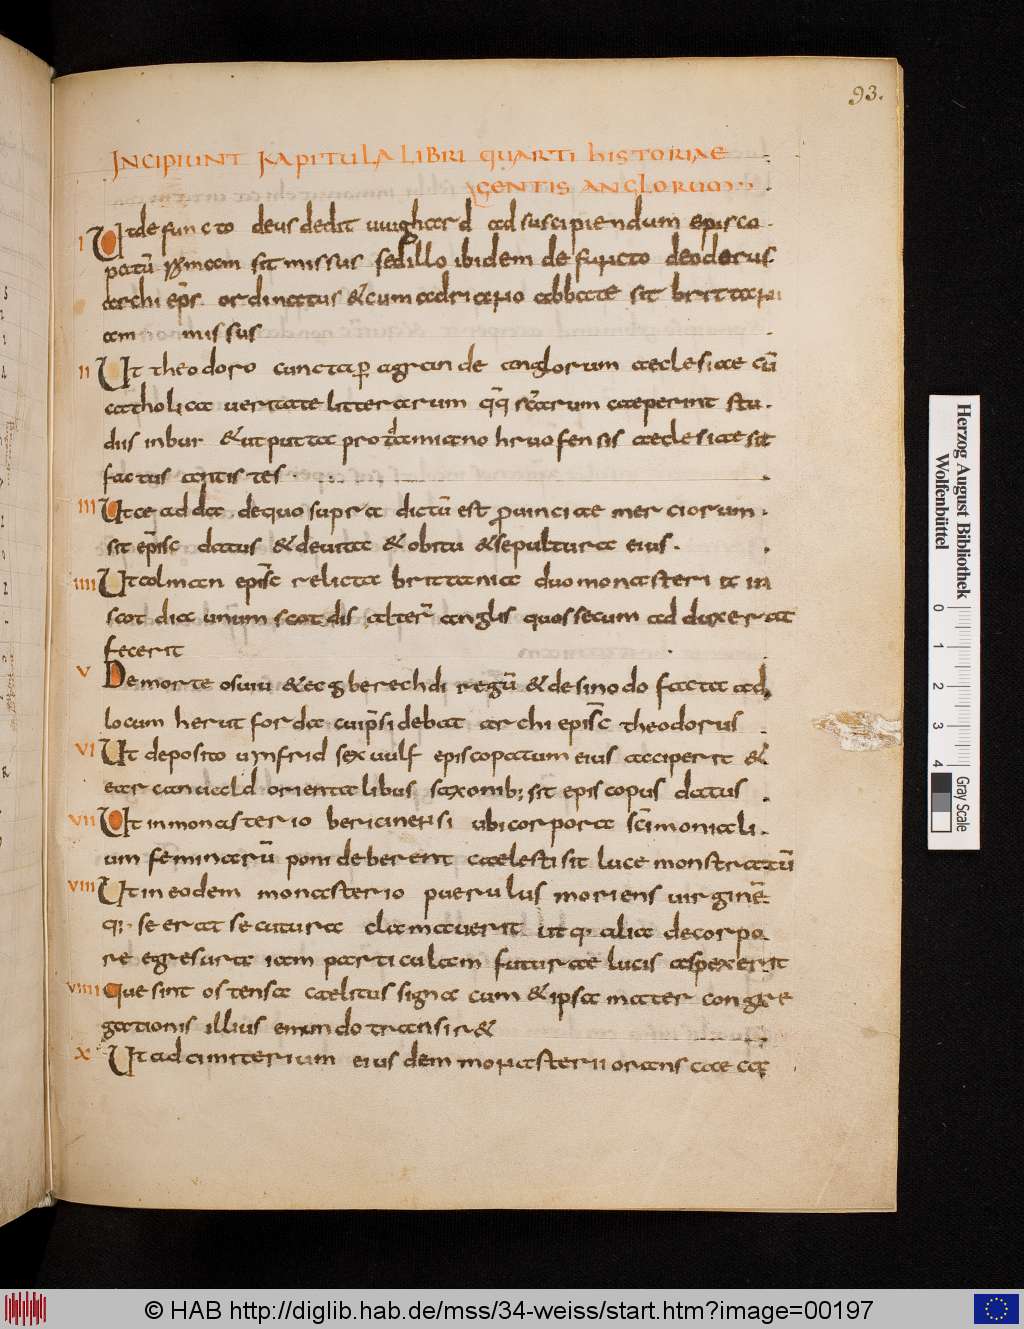 93.
INCIPIUNT KAPITULA LIBRI QUARTI HISTORIAE
GENTIS ANGLORUM
I Ut defuncto deus dedit uuighard ad suscipiendum episco
patū romam sit missus sed illo ibidem defuncto deodorus
archi ep̄s ordinatus & cum adriano abbate sit brittani
am missus
II Ut theodoro cuncta ꝑagrande anglorum aeclesiae cū
catholica ueritate litterarum qq̄ sc̄arum caeperint stu
diis inbui & ut putta pro damiano hruofensis aeclesiae sit
factus antistes
III Ut ceadda de quo supra dictū est prouinciae merciorum
sit ep̄isc datus & de uita & obitu & sepultura eius.
IIII Ut colman ep̄isc relicta brittania duo monasteria in
scotdia unum scotdis alter̄ anglis quos secum adduxerat
fecerit
V De morte osuiu & ecgberechdi regū & de sinodo facta ad
locum herutforda cui p̄sidebat archi episc̄ theodorus
VI Ut deposito uynfrid sexuulf episcopatum eius acciperit &
earcanuald orientalibus saxonib; sit episcopus datus
VII Ut in monasterio bericinensi ubi corpora sc̄imoniali
um feminarū poni deberent caelesti sit luce monstratū
VIII Ut in eodem monasterio puerulus moriens uirginē
q; se erat secutura clamauerit utq; alia de corpo
re egresura iam particulam futurae lucis aspexerit
VIIII Que sint ostensa caelitus signa cum & ipsa mater congre
gationis illius e mundo transir&
X Ut ad cimiterium eiusdem monasterii orans caeca
Herzog August Bibliothek
Wolfenbüttel
0 1 2 3 4 Gray Scale
© HAB http://diglib.hab.de/mss/34-weiss/start.htm?image=00197